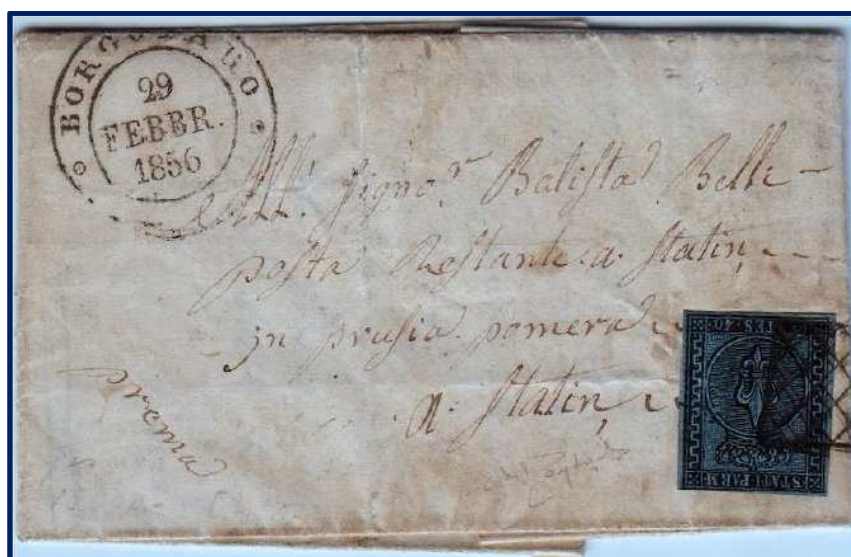 BORGOTARO
29
FEBBR.
1856
All' Signor Batista Belli
posta Restante a Statin
in prusia pomera
a Statin
STATI PARM